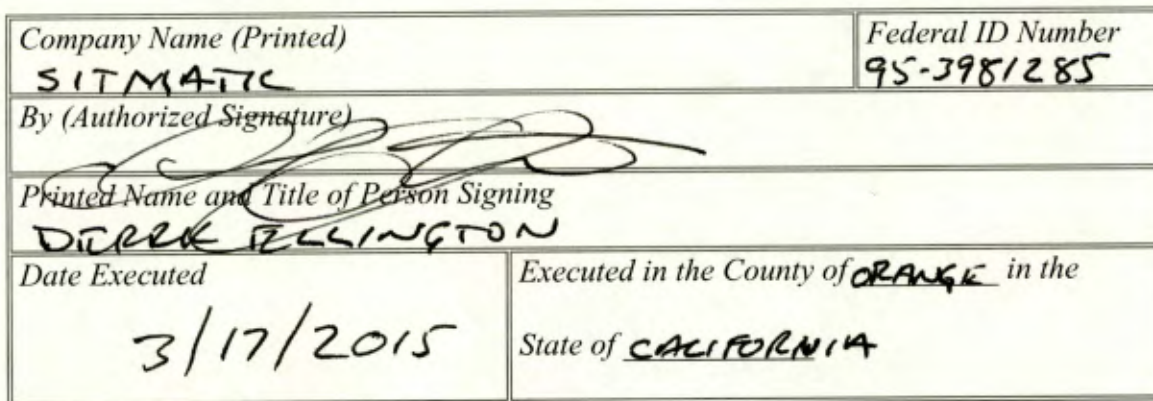 Company Name (Printed)
SITMATIC
Federal ID Number
95-3981285
By (Authorized Signature)
Printed Name and Title of Person Signing
DEREK ELLINGTON
Date Executed
3/17/2015
Executed in the County of ORANGE in the
State of CALIFORNIA